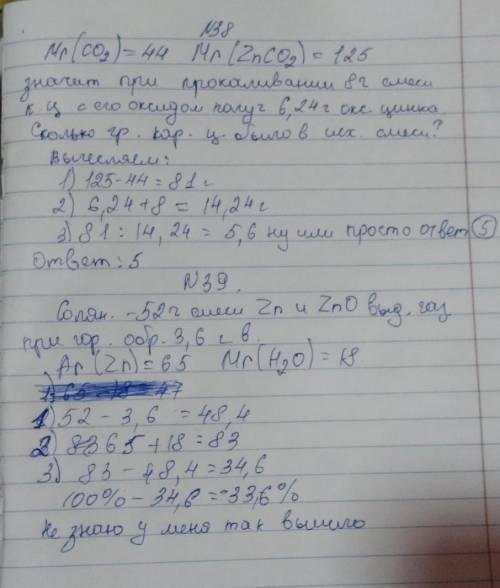 N38
Mr(CO2)=44 Mr(ZnCO2)=125
значит при прокаливании 8г смеси
к. ц с его оксидом получ 6,24г окс. цинка
Сколько гр. кар. ц. было в исх. смеси?
Вычесляем:
1) 125-44=81г
2) 6,24+8=14,24г
3) 81:14,24=5,6 ну или просто ответ 5
Ответ: 5
N39.
Солян. -52г смеси Zn и ZnO выд. газ
при гор. обр. 3,6 г в.
Ar(Zn)=65 Mr(H2O)=18
1) 65-18=47
1) 52-3,6=48,4
2) 65+18=83
3) 83-48,4=34,6
100%-34,6=-33,6%
Не знаю у меня так вышло